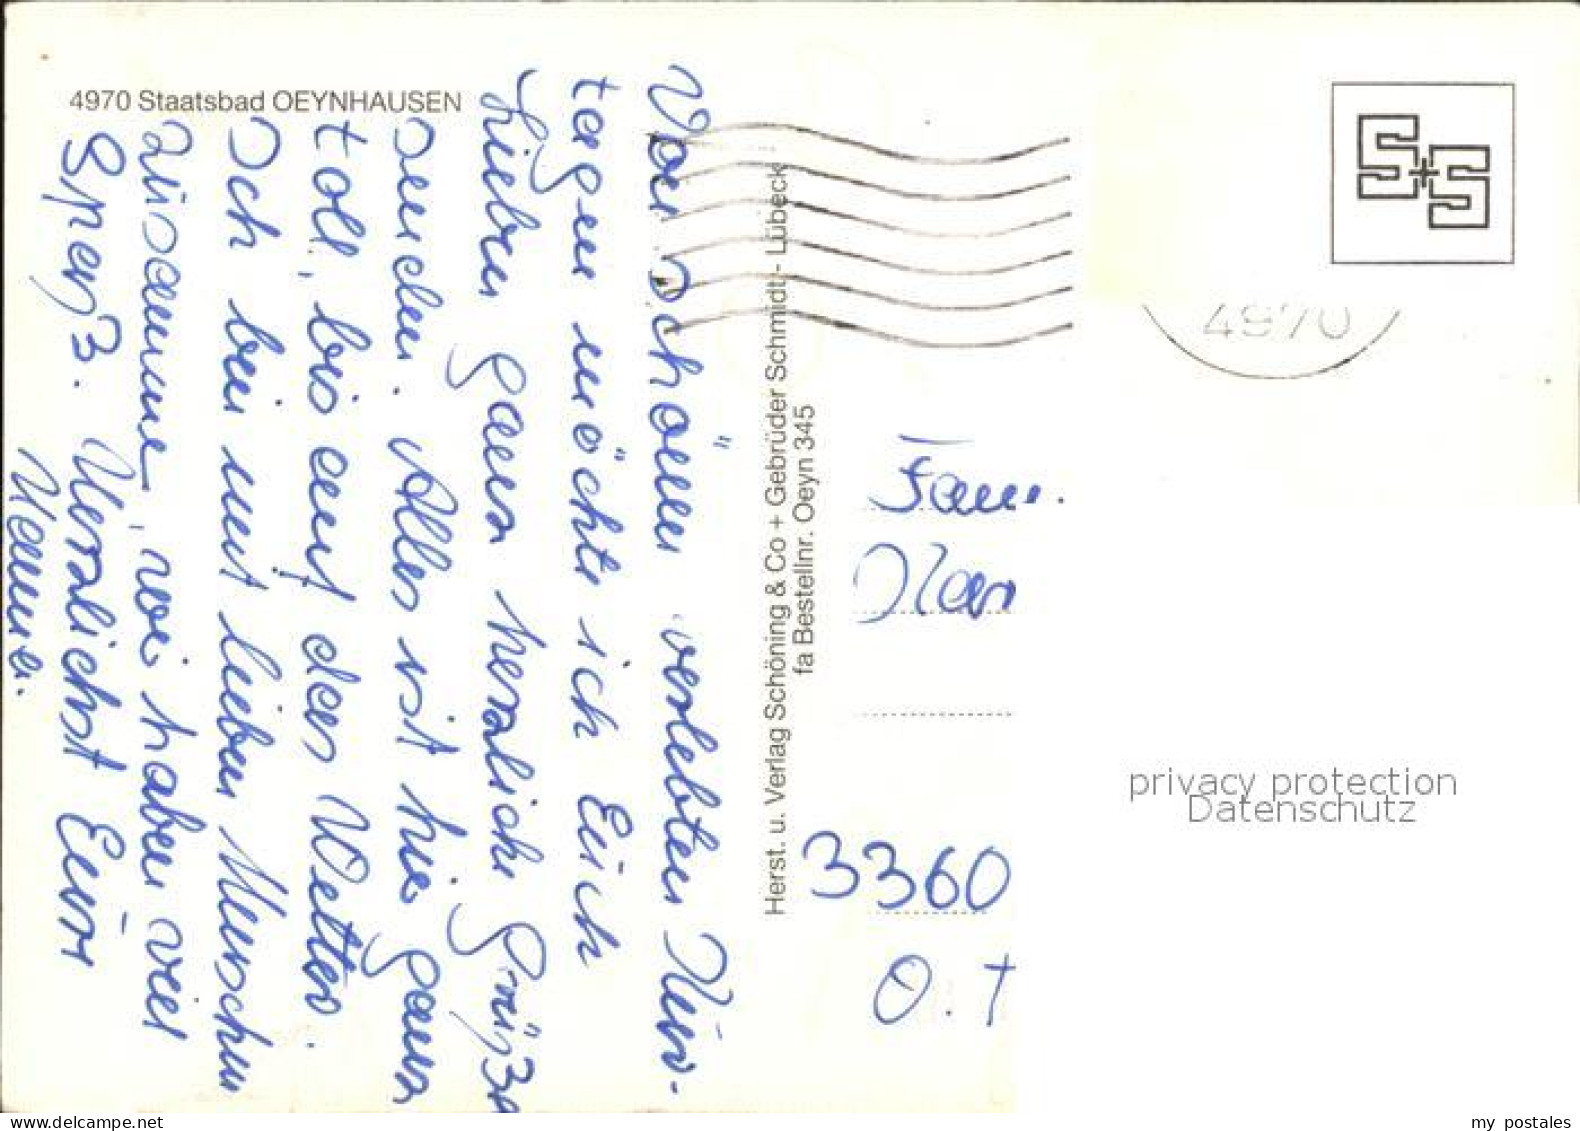 4970 Staatsbad OEYNHAUSEN
Von schönen verlebten Kur-
tagen möchte ich Euch
Lieben ganz herzliche Grüße
senden. Alles ist hier ganz
toll, bis auf das Wetter.
Ich bin mit lieben Menschen
zusammen, wir haben viel
Spaß. Herzlichst Eure
Hanna.
Herst. u. Verlag Schöning & Co + Gebrüder Schmidt - Lübeck
fa Bestellnr. Oeyn 345
S+S
4970
Fam.
3360
O. +
privacy protection
Datenschutz
www.delcampe.net
my_postales